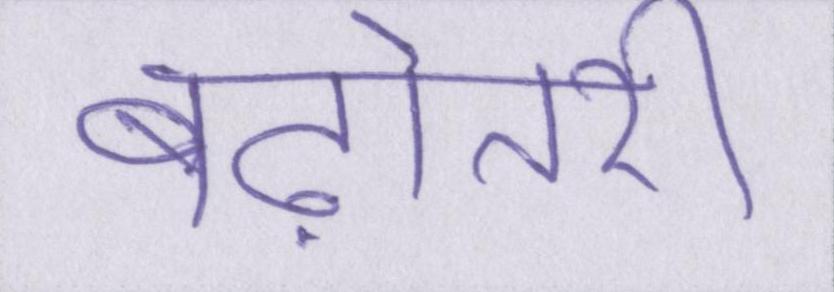 बढ़ोतरी